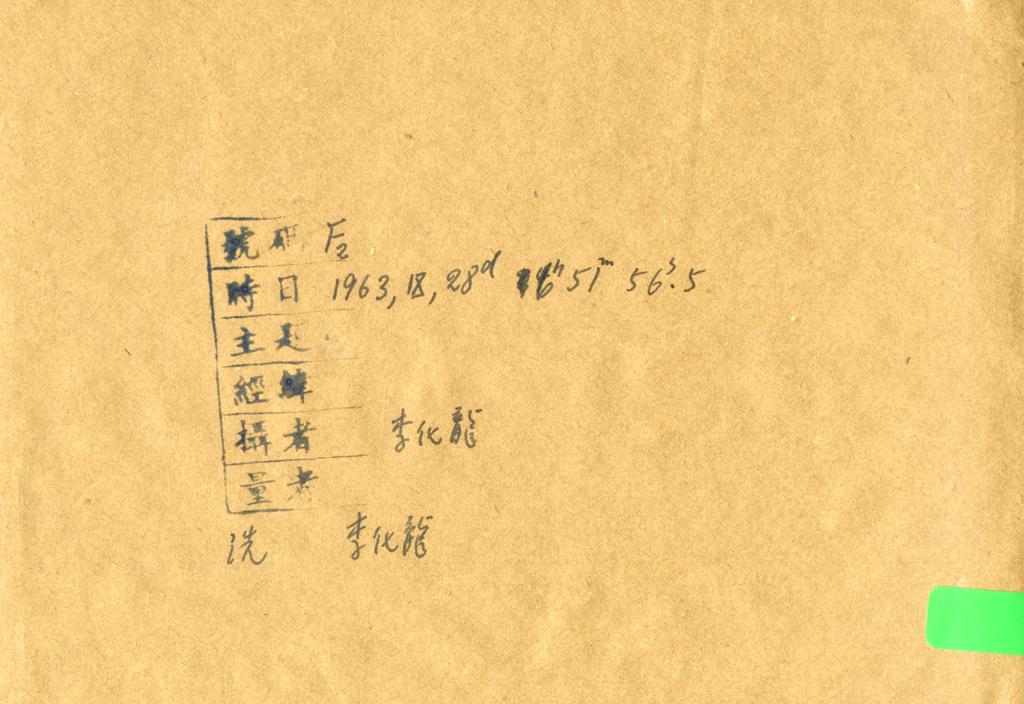 號碼 F₂
時日 1963, 12, 28ᵈ 16ʰ 51ᵐ 56ˢ.5
主是
經緯
攝者 李化龍
量者
洗 李化龍